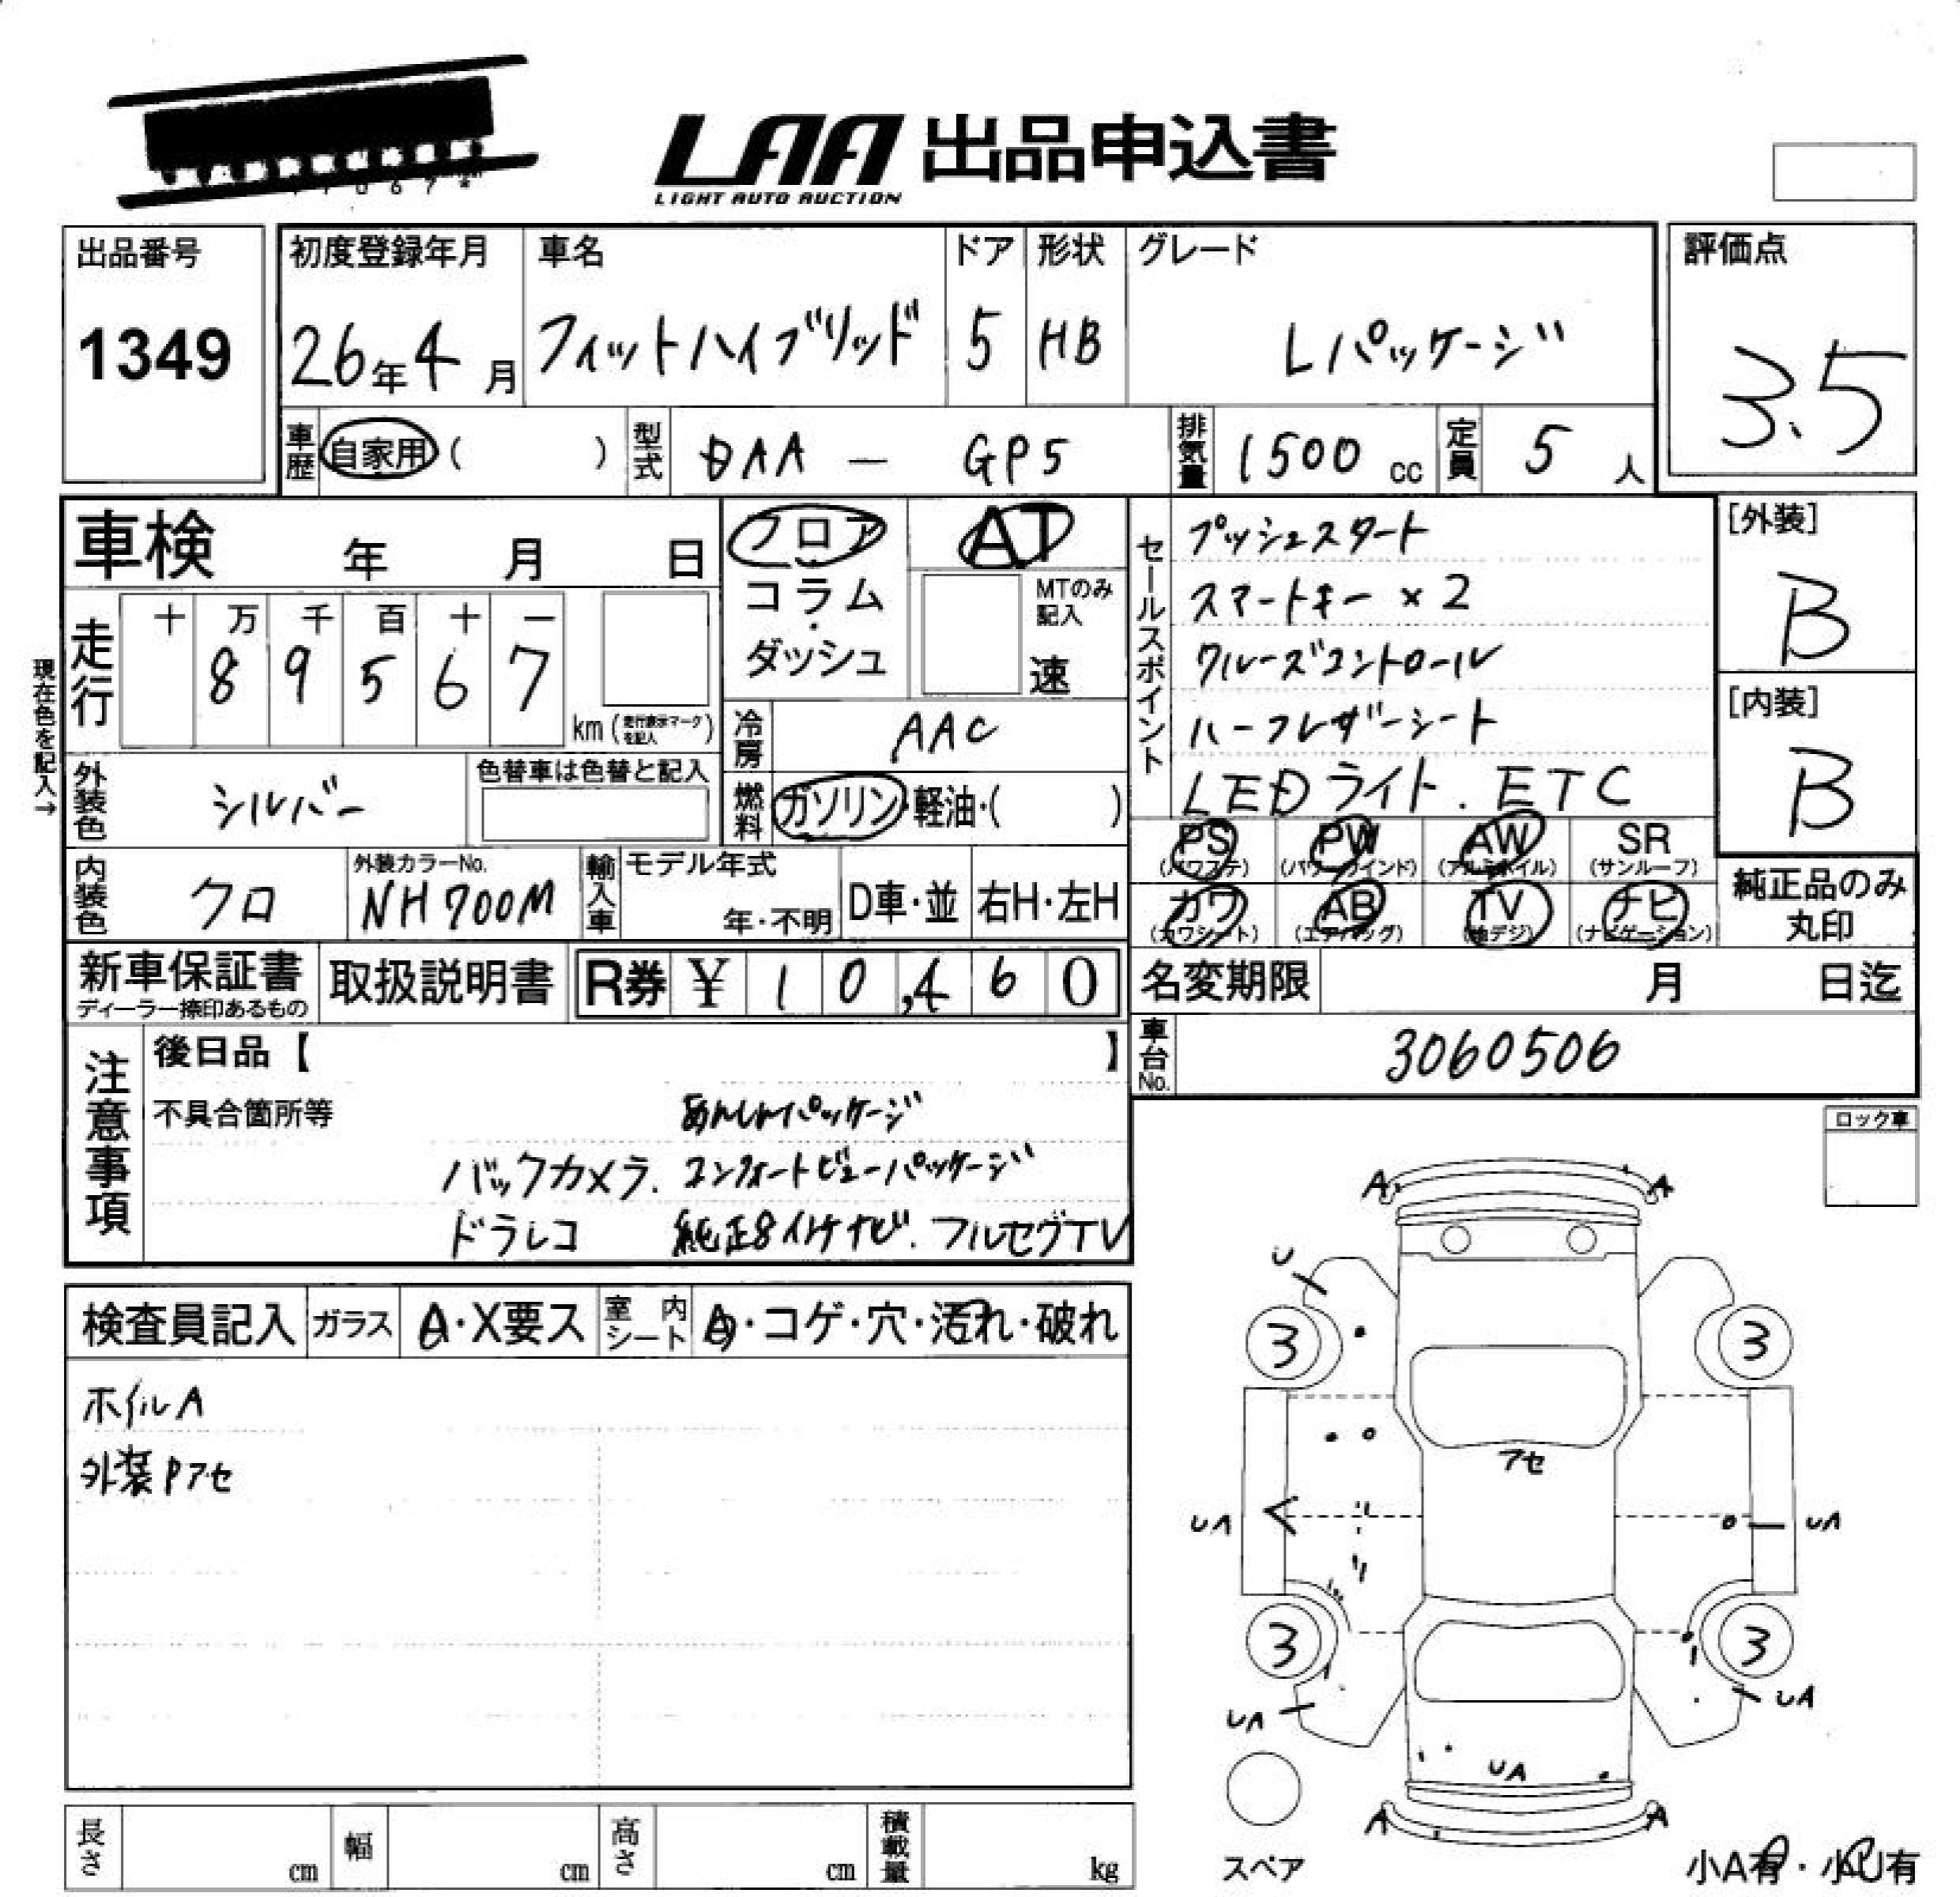 LAA 出品申込書
LIGHT AUTO AUCTION
出品番号
1349
初度登録年月
26年4月
車名
フィットハイブリッド
ドア
5
形状
HB
グレード
Lパッケージ
評価点
3.5
車歴
自家用( )
型式
DAA - GP5
排気量
1500 cc
定員
5 人
車検 年 月 日
フロア
コラム
・
ダッシュ
AT
MTのみ
記入
速
セールスポイント
プッシュスタート
スマートキー×2
クルーズコントロール
ハーフレザーシート
LEDライト. ETC
[外装]
B
[内装]
B
現在色を記入→
走行
十 万 千 百 十 一
8 9 5 6 7
km(走行表示マークを記入)
冷房
AAC
外装色
シルバー
色替車は色替と記入
燃料
ガソリン・軽油・( )
PS
(パワステ)
PW
(パワーウインド)
AW
(アルミホイル)
SR
(サンルーフ)
内装色
クロ
外装カラーNo.
NH700M
輸入車
モデル年式
年・不明
D車・並
右H・左H
カワ
(カワシート)
AB
(エアバッグ)
TV
(地デジ)
ナビ
(ナビゲーション)
純正品のみ
丸印
新車保証書
ディーラー捺印あるもの
取扱説明書
R券 ¥ 10,460
名変期限 月 日迄
車台No.
3060506
注意事項
後日品【 】
不具合箇所等
あんしんパッケージ
バックカメラ. コンフォートビューパッケージ
ドラレコ 純正8インチナビ. フルセグTV
ロック車
検査員記入
ガラス
A・X要ス
室内シート
A・コゲ・穴・汚れ・破れ
ホイルA
外装Pアセ
A A
U
3 3
アセ
UA UA
3 3
UA UA
UA
A A
スペア
小A有・小U有
長さ cm
幅 cm
高さ cm
積載量 kg